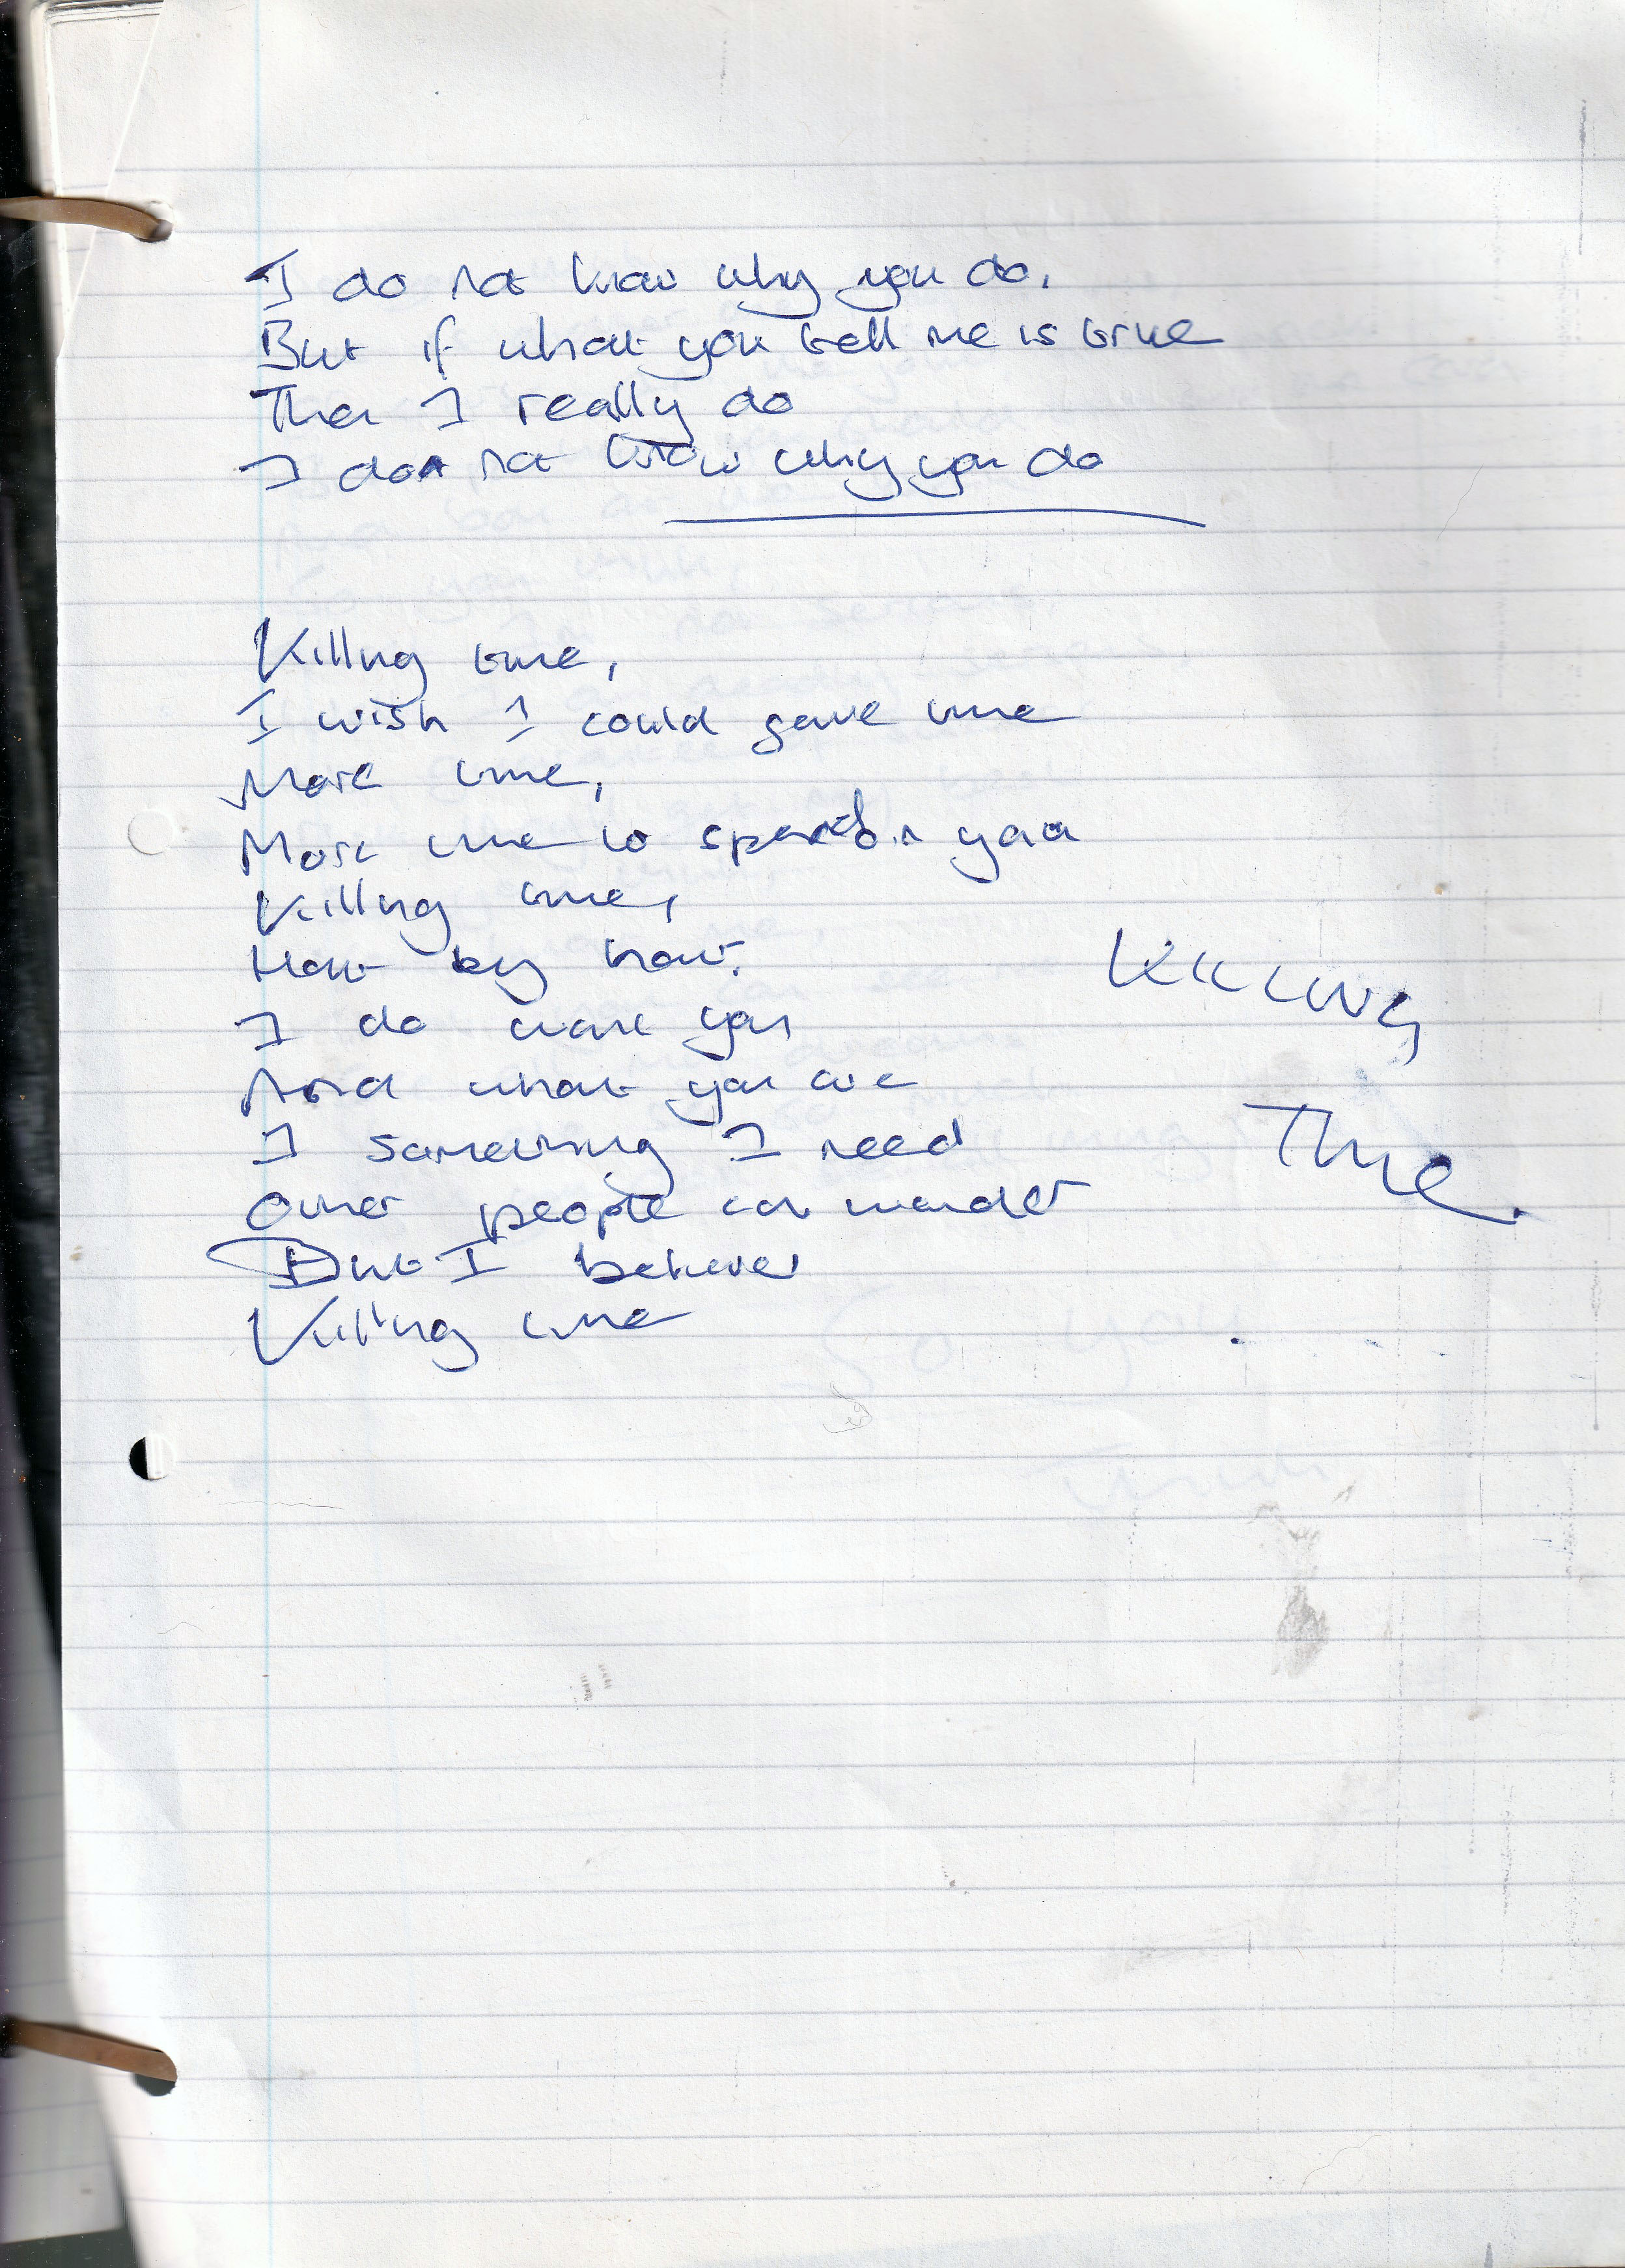 I do not know why you do,
But if what you tell me is true
Then I really do
I do not know why you do
Killing time,
I wish I could gave time
More time,
More time to spend on you
Killing time,
How by how.
I do want you
And what you are
I something I need
Other people can wonder
But I believe
Killing time
KILLING
Time.